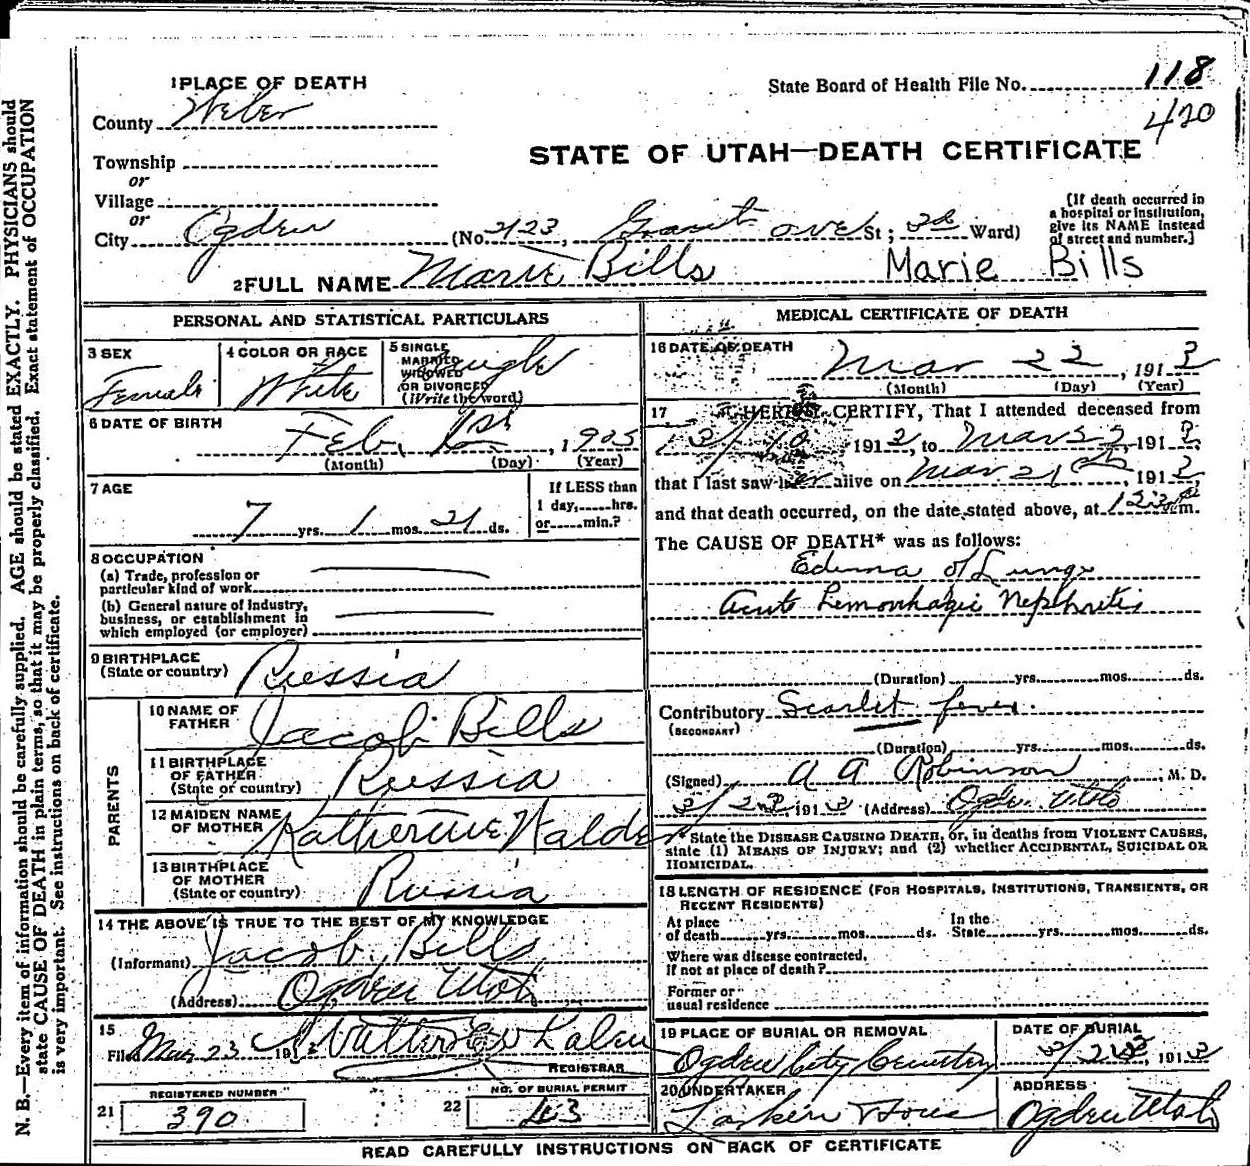 1 PLACE OF DEATH
State Board of Health File No. 118
County Weber
420
STATE OF UTAH—DEATH CERTIFICATE
Township
or
Village
or
City Ogden (No. 2123, Grant ave St; 3rd Ward)
[If death occurred in
a hospital or institution,
give its NAME instead
of street and number.]
2 FULL NAME Marie Bills Marie Bills
PERSONAL AND STATISTICAL PARTICULARS
3 SEX
Female
4 COLOR OR RACE
White
5 SINGLE
MARRIED
WIDOWED
OR DIVORCED
(Write the word)
Single
6 DATE OF BIRTH
Feb. 1st, 1905
(Month) (Day) (Year)
7 AGE
7 yrs. 1 mos. 21 ds.
If LESS than
1 day,.....hrs.
or.....min.?
8 OCCUPATION
(a) Trade, profession or
particular kind of work
(b) General nature of Industry,
business, or establishment in
which employed (or employer)
9 BIRTHPLACE
(State or country) Russia
PARENTS
10 NAME OF
FATHER Jacob Bills
11 BIRTHPLACE
OF FATHER
(State or country) Russia
12 MAIDEN NAME
OF MOTHER Katherine Walder
13 BIRTHPLACE
OF MOTHER
(State or country) Russia
14 THE ABOVE IS TRUE TO THE BEST OF MY KNOWLEDGE
(Informant) Jacob Bills
(Address) Ogden Utah
15
Filed Mar 23 191
REGISTRAR
REGISTERED NUMBER
21 390
NO. OF BURIAL PERMIT
22
MEDICAL CERTIFICATE OF DEATH
16 DATE OF DEATH
Mar 22, 191
(Month) (Day) (Year)
17 I HEREBY CERTIFY, That I attended deceased from
191 to Mar 22, 191
that I last saw her alive on Mar. 21, 191
and that death occurred, on the date stated above, at m.
The CAUSE OF DEATH* was as follows:
Edema of Lungs
Acute Hemorrhagic Nephritis
(Duration) yrs. mos. ds.
Contributory Scarlet fever.
(SECONDARY)
(Duration) yrs. mos. ds.
(Signed) A A Robinson, M. D.
3/22nd, 191 (Address) Ogden Utah
* State the DISEASE CAUSING DEATH, or, in deaths from VIOLENT CAUSES,
state (1) MEANS OF INJURY; and (2) whether ACCIDENTAL, SUICIDAL OR
HOMICIDAL.
18 LENGTH OF RESIDENCE (FOR HOSPITALS, INSTITUTIONS, TRANSIENTS, OR
RECENT RESIDENTS)
At place
of death yrs. mos. ds.
In the
State yrs. mos. ds.
Where was disease contracted,
if not at place of death?
Former or
usual residence
19 PLACE OF BURIAL OR REMOVAL
Ogden City Cemetery
DATE OF BURIAL
191
20 UNDERTAKER
Larkin & Sons
ADDRESS
Ogden Utah
READ CAREFULLY INSTRUCTIONS ON BACK OF CERTIFICATE
N. B.—Every item of information should be carefully supplied. AGE should be stated EXACTLY. PHYSICIANS should
state CAUSE OF DEATH in plain terms, so that it may be properly classified. Exact statement of OCCUPATION
is very important. See instructions on back of certificate.